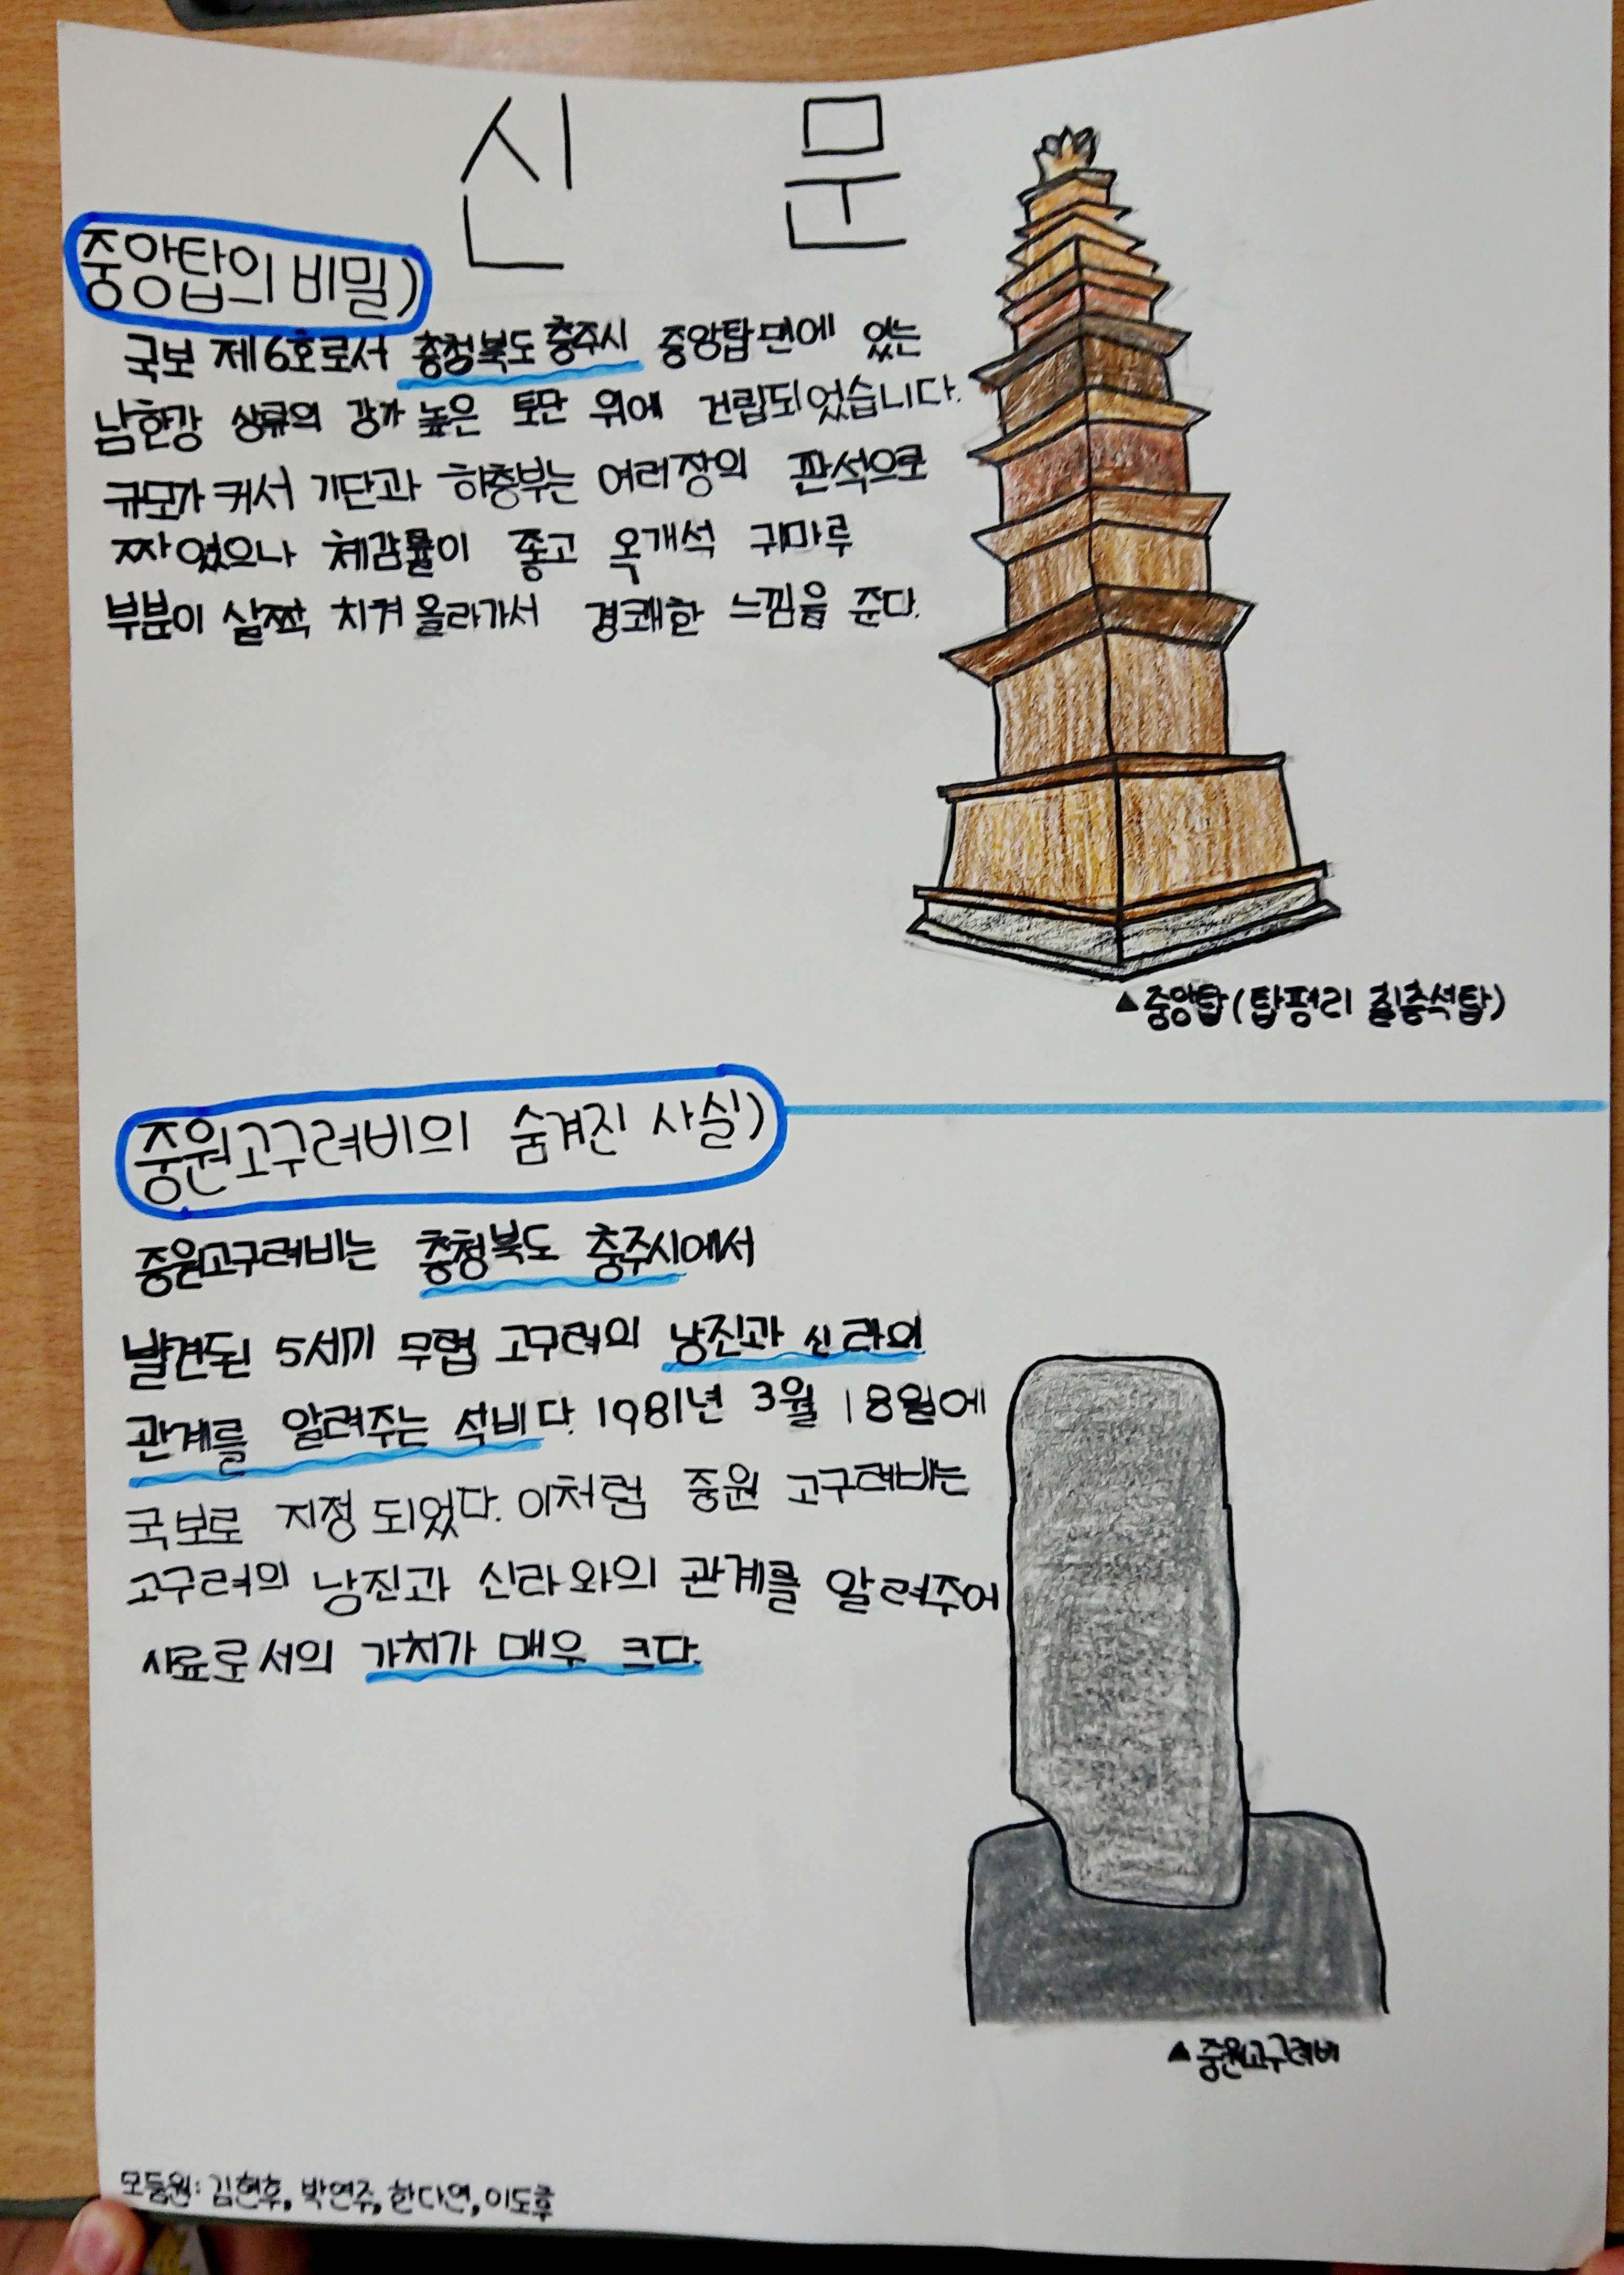 신 문
중앙탑의 비밀)
국보 제6호로서 충청북도 충주시 중앙탑면에 있는
남한강 상류의 강가 높은 토단 위에 건립되었습니다.
규모가 커서 기단과 하층부는 여러장의 판석으로
짜였으나 체감률이 좋고 옥개석 귀마루
부분이 살짝 치켜 올라가서 경쾌한 느낌을 준다.
▲중앙탑(탑평리 칠층석탑)
중원고구려비의 숨겨진 사실)
중원고구려비는 충청북도 충주시에서
발견된 5세기 무렵 고구려의 남진과 신라의
관계를 알려주는 석비다. 1981년 3월 18일에
국보로 지정 되었다. 이처럼 중원 고구려비는
고구려의 남진과 신라와의 관계를 알려주어
사료로서의 가치가 매우 크다.
▲중원고구려비
모둠원: 김현후, 박연주, 한다연, 이도훈